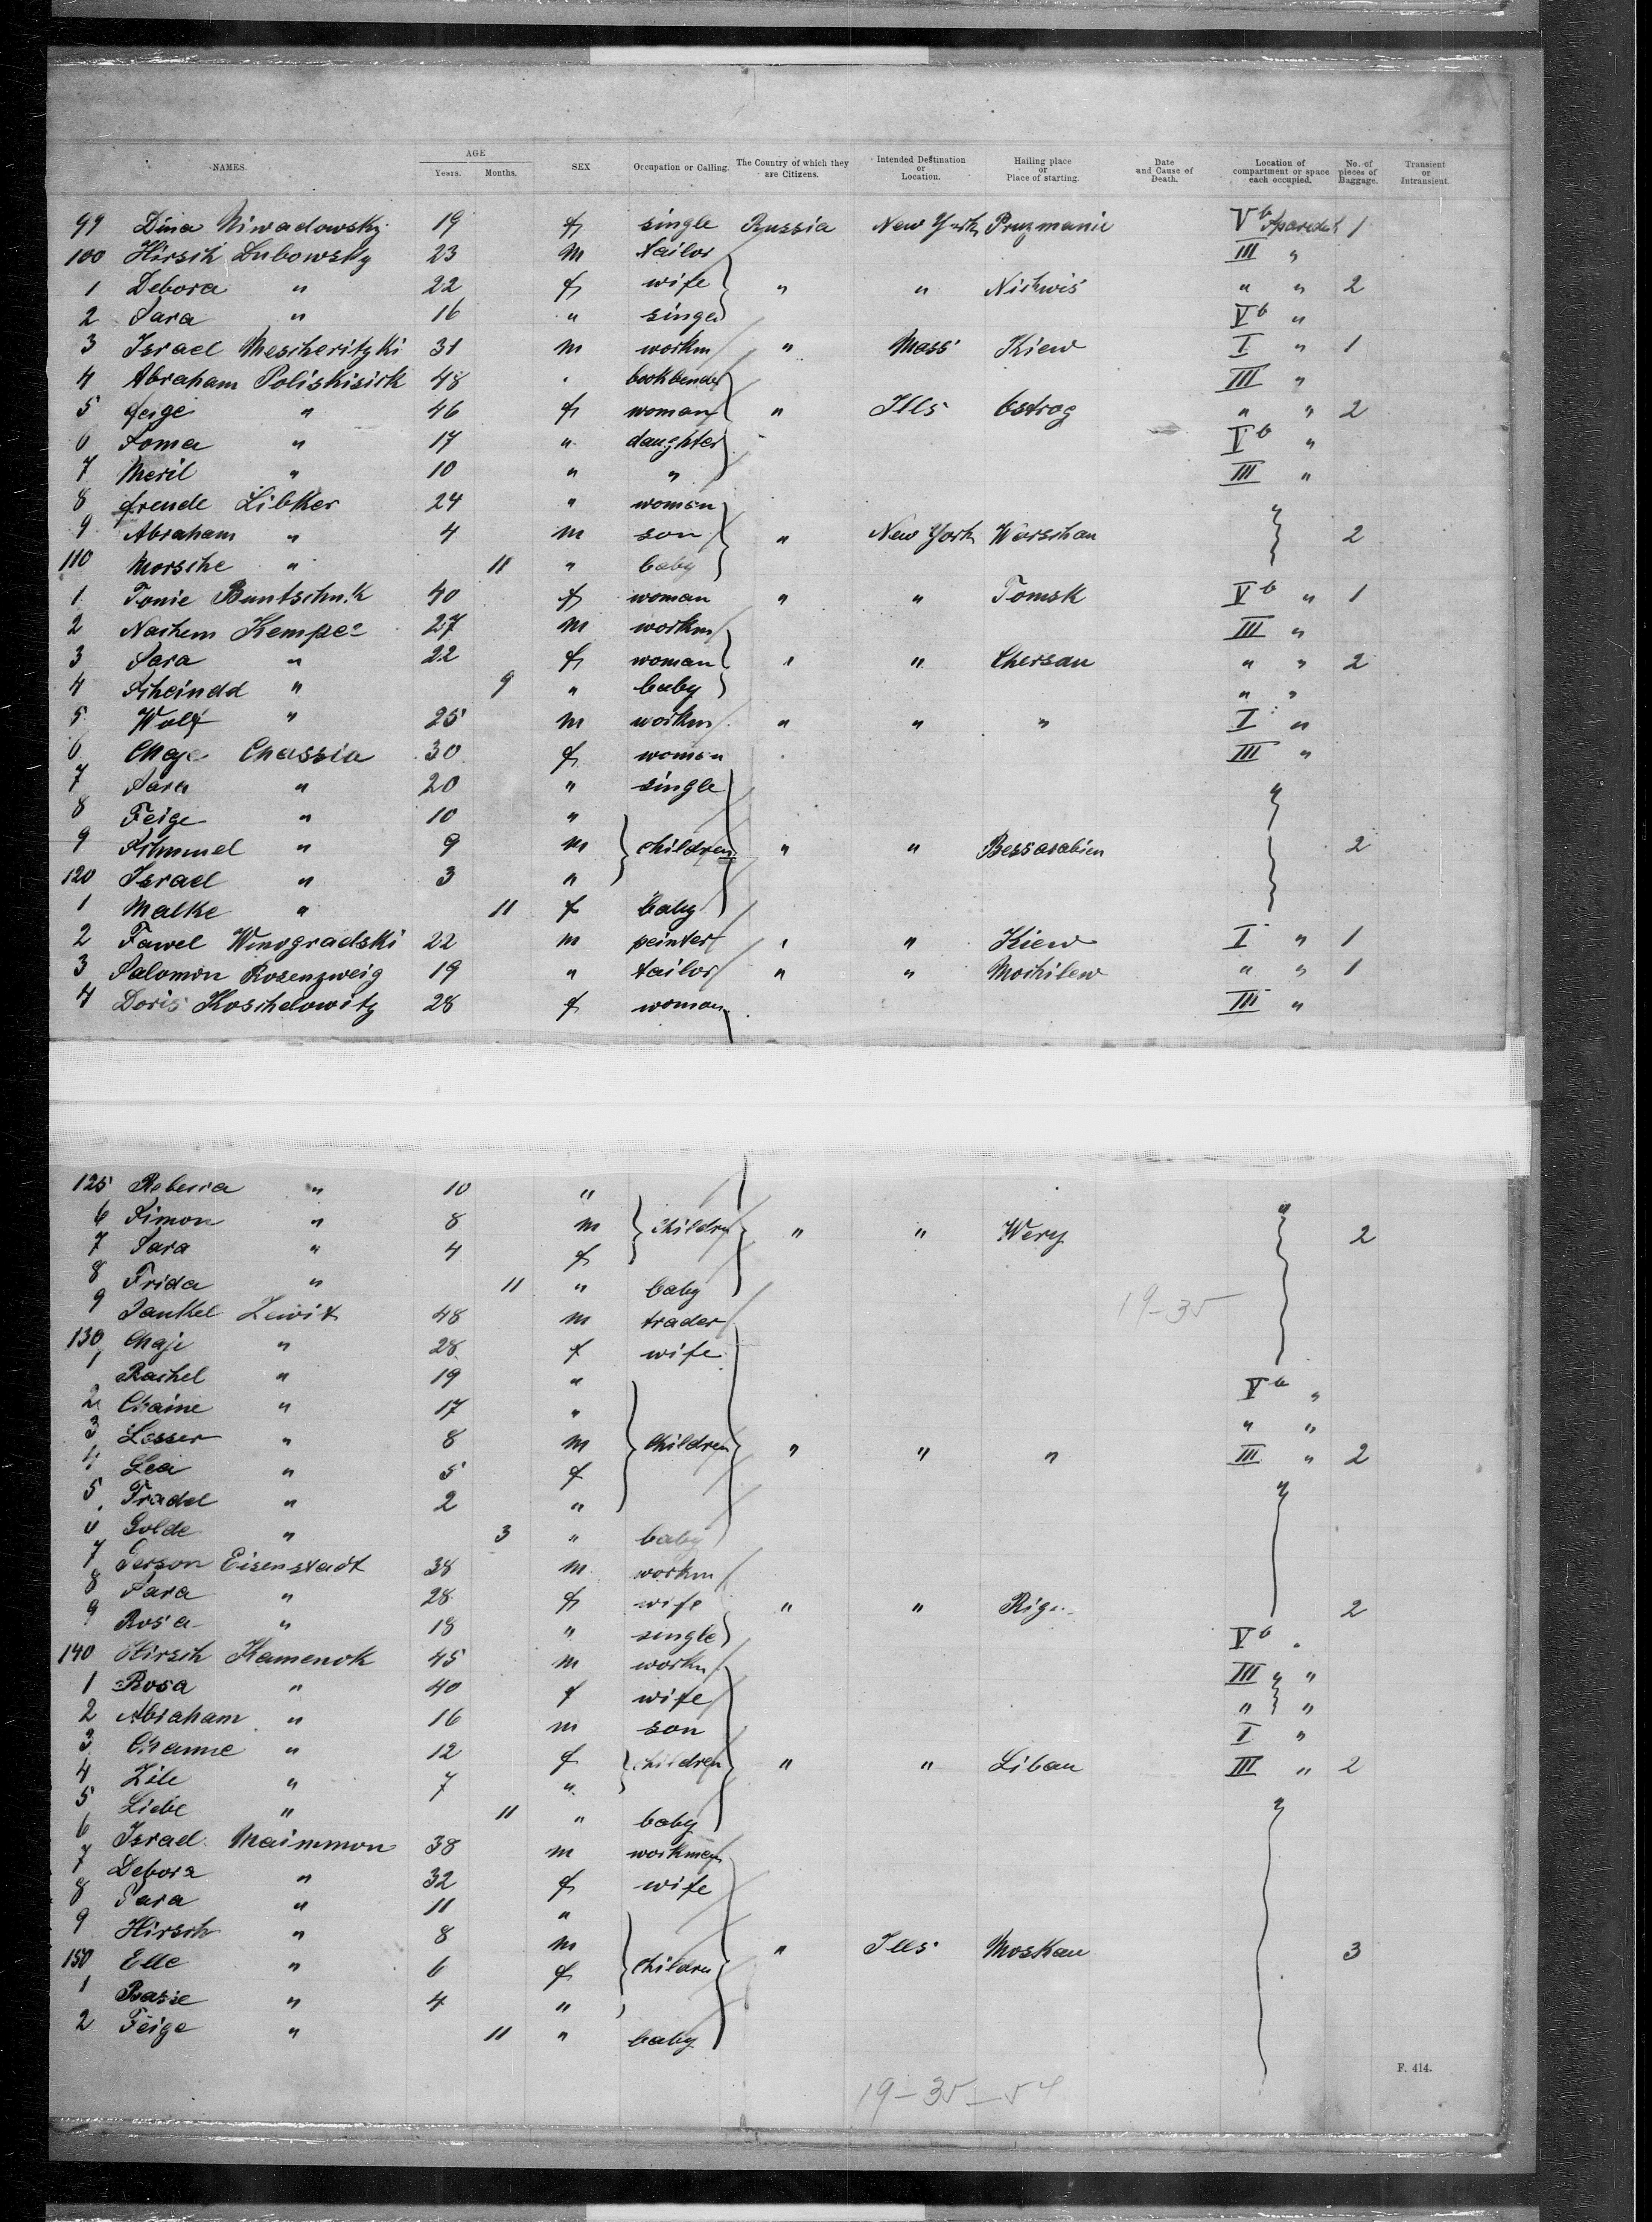 NAMES. AGE Years. Months. SEX Occupation or Calling. The Country of which they are Citizens. Intended Destination or Location. Hailing place or Place of starting. Date and Cause of Death. Location of compartment or space each occupied. No. of pieces of Baggage. Transient or Intransient.
99 Dina Niwadowsky 19 f single Russia New York Pruzmanie V b 1
100 Hirsch Lubowsky 23 m tailor III "
1 Debora " 22 f wife " " Nishwis " " 2
2 Sara " 16 " V b "
3 Israel Mescheritzki 31 m workm " Mass Kiew I " 1
4 Abraham Poliskisirk 48 bookbender III "
5 feige " 46 f woman " Ills Ostrog " " 2
6 Soma " 17 " daughter V b "
7 Meril " 10 " " III "
8 freude Libker 24 " woman "
9 Abraham " 4 m son " New York Warschau 2
110 Morsche " 11 " baby
1 Tonie 40 f woman " " Tomsk V b " 1
2 Nachem Kemper 27 m workm III "
3 Sara " 22 f woman " " Chersau " " 2
4 Scheindel " 9 " baby " "
5 Wolf " 25 m workm " " " I "
6 Chaje Chassia 30 f woman III "
7 Sara " 20 " single "
8 Feige " 10 "
9 Schmuel " 9 m children " " Bessarabien 2
120 Israel " 3 "
1 Malke " 11 f baby
2 Pawel Winogradski 22 m peinter " " Kiew I " 1
3 Salomon Rosenzweig 19 " tailor " " Mochilew " " 1
4 Doris Koschelowitz 28 f woman III "
125 Rebecca " 10 "
6 Simon " 8 m children " " Wery 2
7 Sara " 4 f
8 Frida " 11 " baby
9 Jankel Lewit 48 m trader 19-35
130 Chaje " 28 f wife
1 Rachel " 19 " V b "
2 Chaine " 17 " " "
3 Lesser " 8 m children " " " III " 2
4 Lea " 5 f
5 Fradel " 2 "
6 Golde " 3 " baby
7 Gerson Eisenstadt 38 m workm
8 Sara " 28 f wife " " Riga 2
9 Rosa " 18 " single V b "
140 Hirsch Kamenok 45 m workm III " "
1 Rosa " 40 f wife " "
2 Abraham " 16 m son I "
3 Channe " 12 f children " " Libau III " 2
4 Zile " 7 "
5 Liebe " 11 " baby
6 Israel Maimmon 38 m workman
7 Debora " 32 f wife
8 Sara " 11 "
9 Hirsch " 8 m children " Ills Moskau 3
150 Elle " 6 f
1 Basse " 4 "
2 Feige " 11 " baby
F. 414.
19-35-54